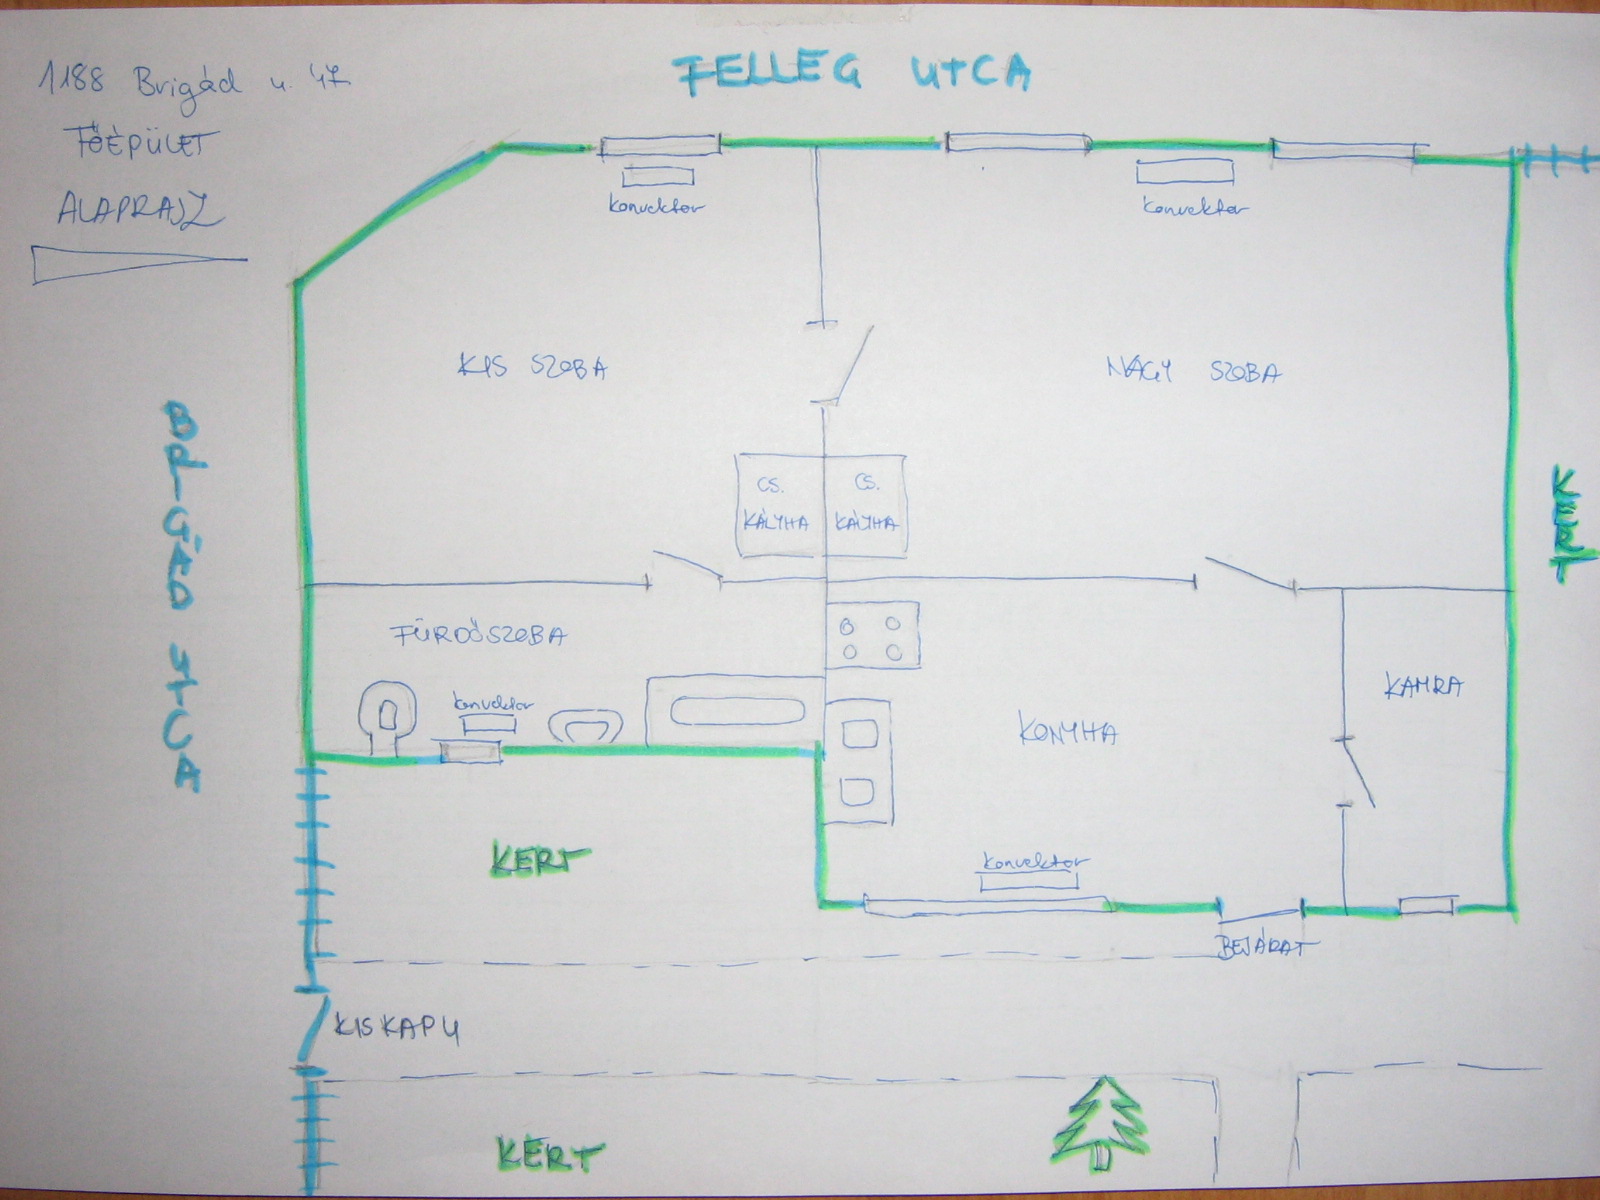 1188 Brigád u. 47.
FŐÉPÜLET
ALAPRAJZ
FELLEG UTCA
Konvektor
Konvektor
KIS SZOBA
NAGY SZOBA
BRIGÁD UTCA
KERT
CS.
KÁLYHA
CS.
KÁLYHA
FÜRDŐSZOBA
Konvektor
KAMRA
KONYHA
KERT
Konvektor
BEJÁRAT
KISKAPU
KERT